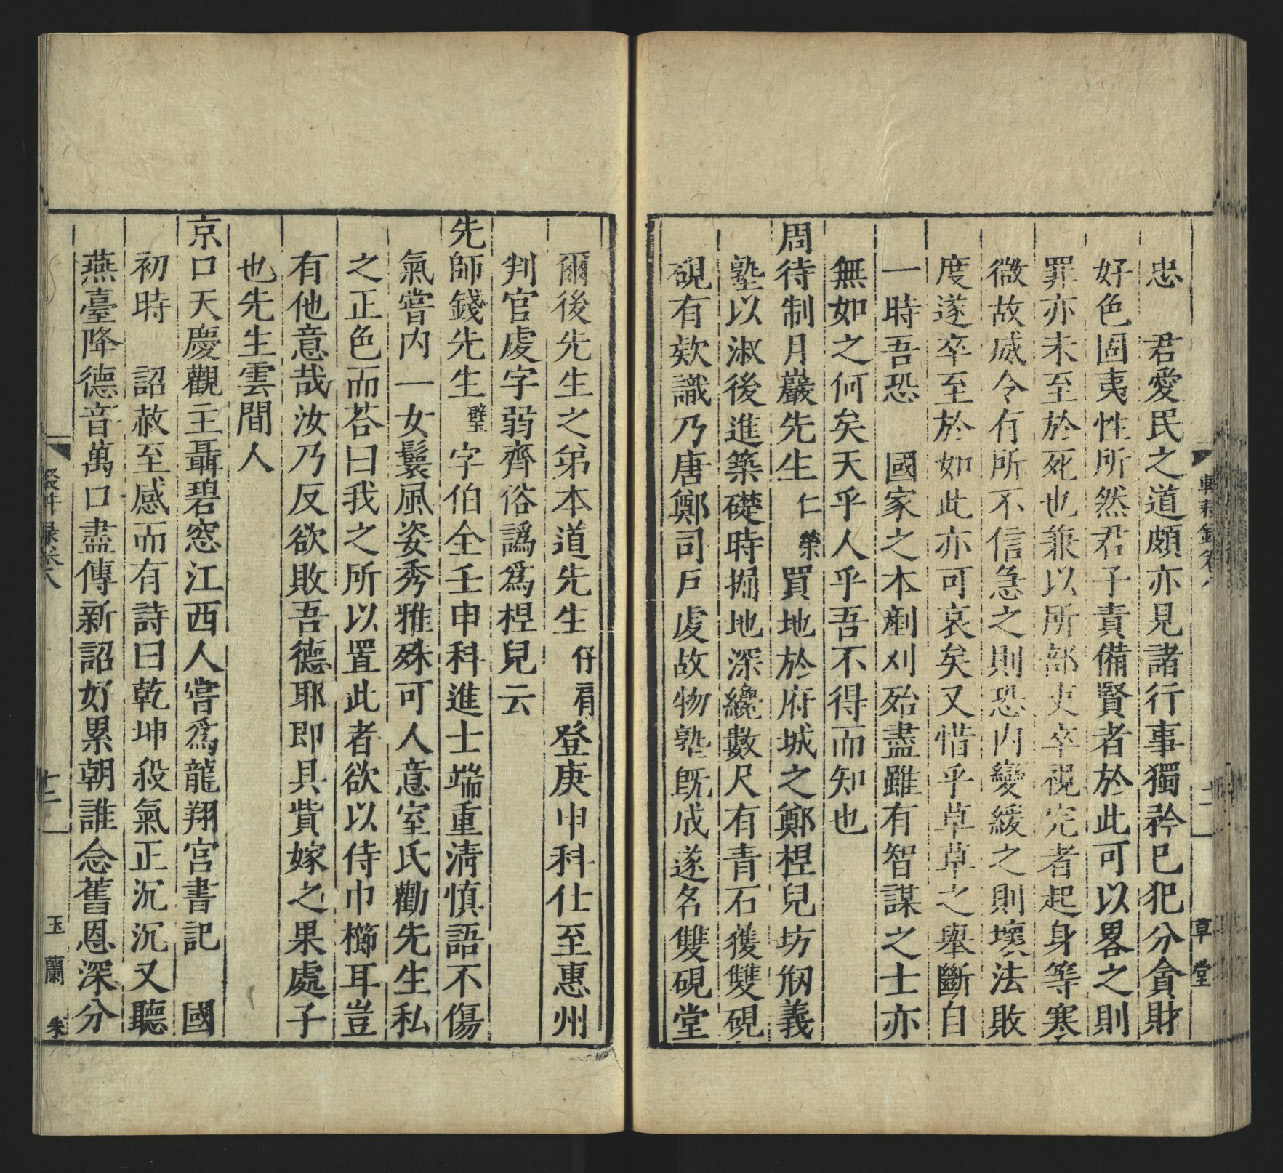 忠　君愛民之道頗亦見諸行事獨矜已犯分貪財
好色固夷性所然君子責備賢者於此可以畧之則
罪亦未至於死也兼以所部吏卒視完者起身等寒
微故威令有所不信急之則恐内變緩之則壞法敗
度遂卒至於如此亦可哀矣又惜乎草草之舉斷自
一時吾恐　國家之本剷刈殆盡雖有智謀之士亦
無如之何矣天乎人乎吾不得而知也
周待制月巖先生仁榮買地於府城之鄭桯兒坊剏義
塾以淑後進築礎時掘地深纔數尺有青石獲雙硯
硯有欵識乃唐鄭司戶虔故物塾既成遂名雙硯堂
草堂
爾後先生之弟本道先生仔肩登庚申科仕至惠州
判官虔字弱齊俗譌爲桯兒云
先師錢先生璧字伯全壬申科進士端重清慎語不傷
氣嘗内一女鬟風姿秀雅殊可人意室氏勸先生私
之正色而荅曰我之所以置此者欲以侍巾櫛耳豈
有他意哉汝乃反欲敗吾德耶即具貲嫁之果處子
也先生雲間人
京口天慶觀主聶碧窓江西人嘗爲龍翔宮書記　國
初時　詔赦至感而有詩曰乾坤殺氣正沉沉又聽
燕臺降德音萬口盡傳新詔好累朝誰念舊恩深分
玉蘭